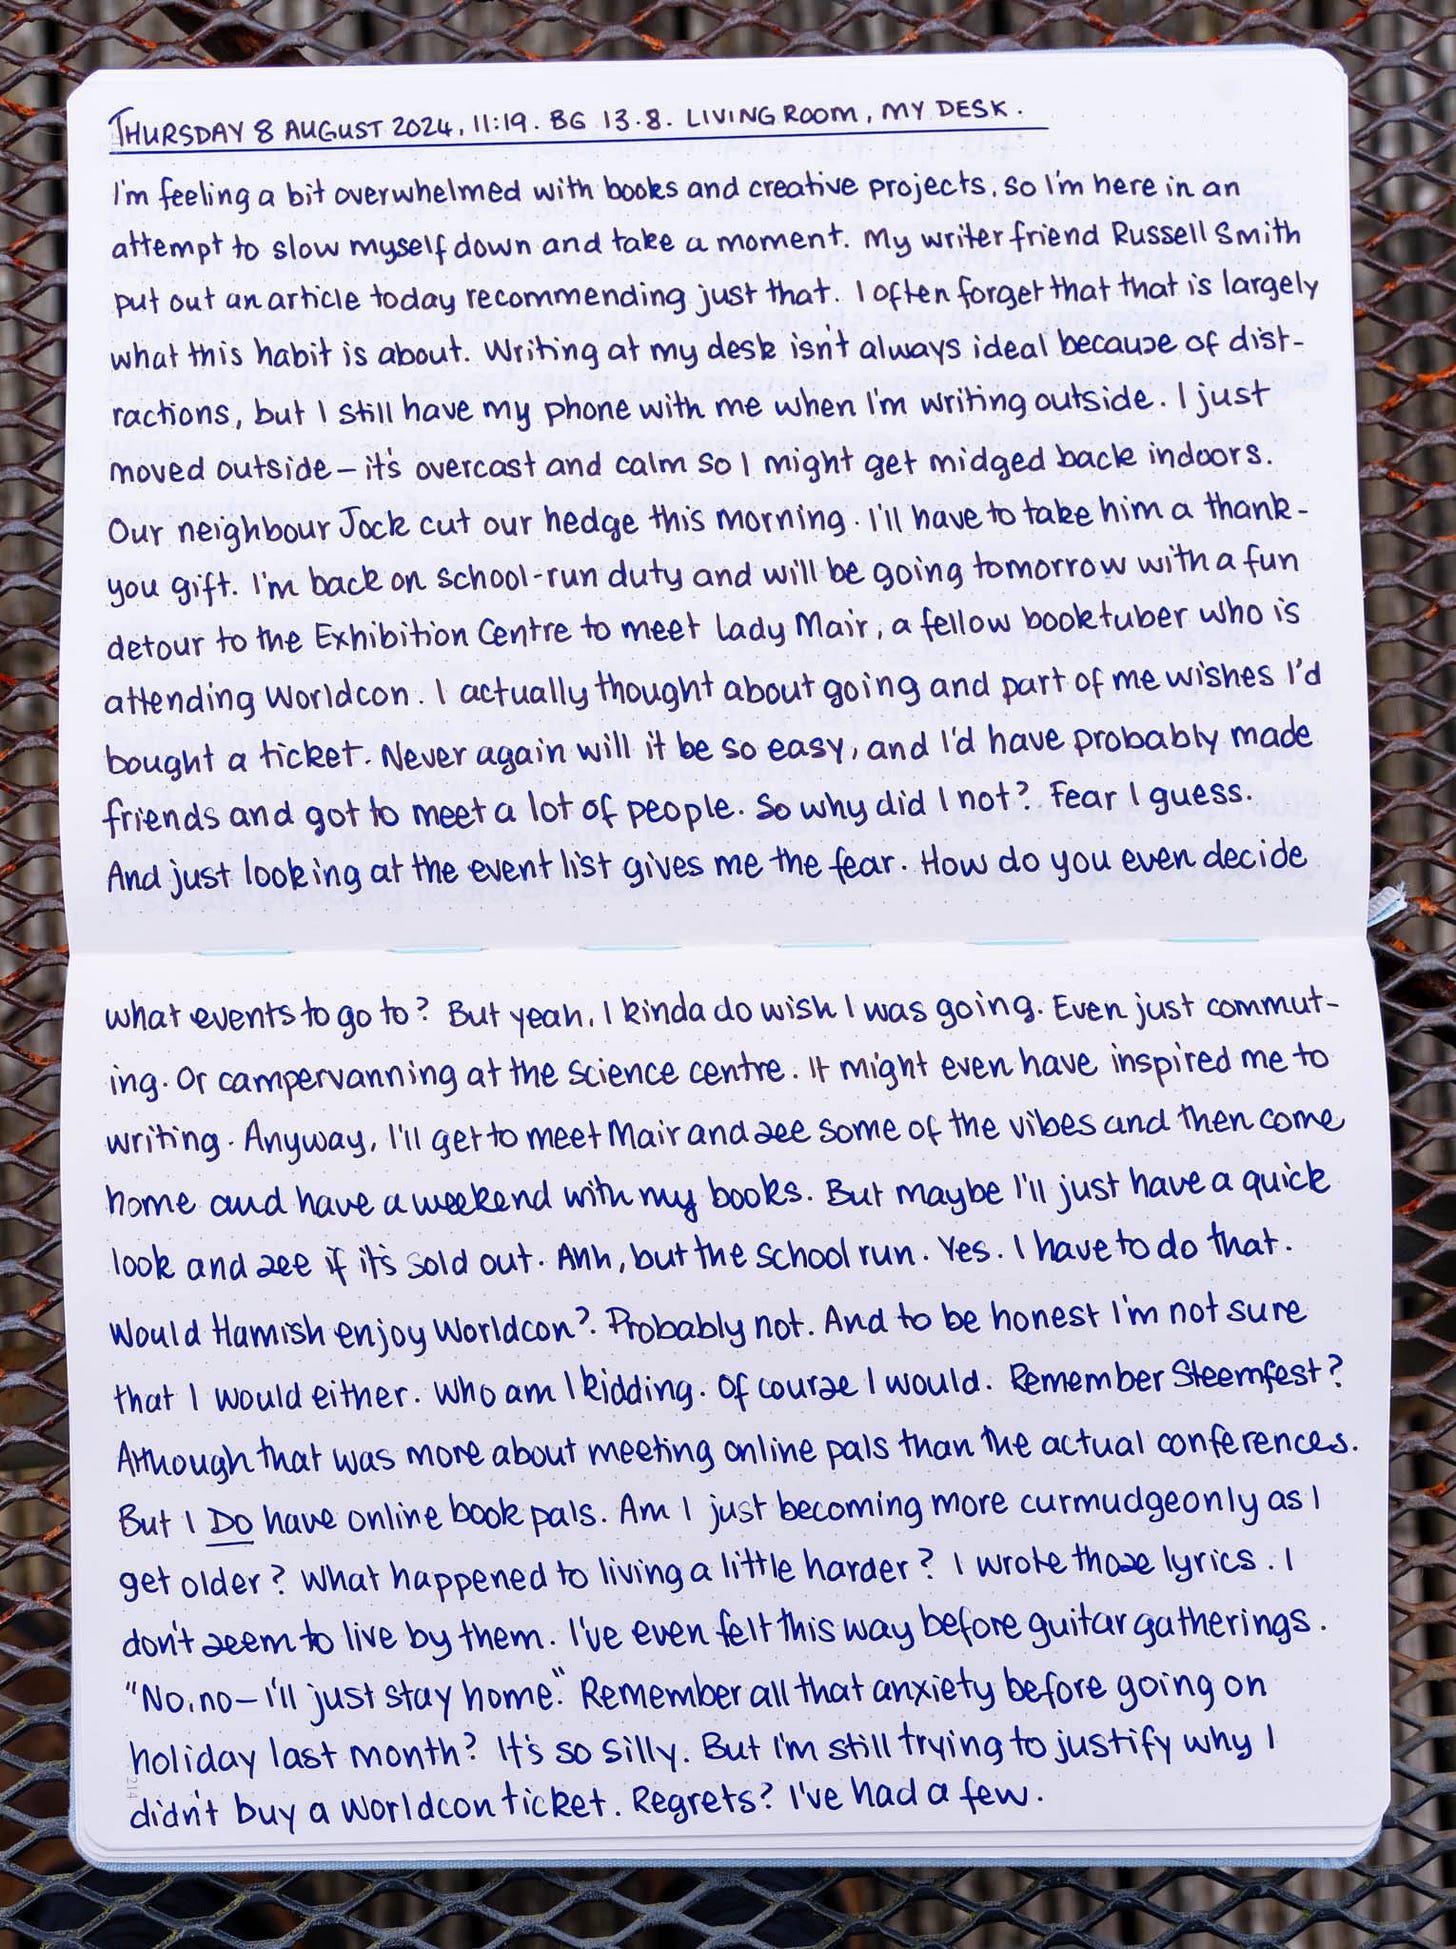 THURSDAY 8 AUGUST 2024, 11:19. BG 13.8. LIVING ROOM, MY DESK.
I'm feeling a bit overwhelmed with books and creative projects, so I'm here in an
attempt to slow myself down and take a moment. My writer friend Russell Smith
put out an article today recommending just that. I often forget that that is largely
what this habit is about. Writing at my desk isn't always ideal because of dist-
ractions, but I still have my phone with me when I'm writing outside. I just
moved outside – it's overcast and calm so I might get midged back indoors.
Our neighbour Jock cut our hedge this morning. I'll have to take him a thank-
you gift. I'm back on school-run duty and will be going tomorrow with a fun
detour to the Exhibition Centre to meet Lady Mair, a fellow booktuber who is
attending Worldcon. I actually thought about going and part of me wishes I'd
bought a ticket. Never again will it be so easy, and I'd have probably made
friends and got to meet a lot of people. So why did I not? Fear I guess.
And just looking at the event list gives me the fear. How do you even decide
what events to go to? But yeah, I kinda do wish I was going. Even just commut-
ing. Or campervanning at the Science centre. It might even have inspired me to
writing. Anyway, I'll get to meet Mair and see some of the vibes and then come
home and have a weekend with my books. But maybe I'll just have a quick
look and see if it's sold out. Ahh, but the school run. Yes. I have to do that.
Would Hamish enjoy Worldcon? Probably not. And to be honest I'm not sure
that I would either. Who am I kidding. Of course I would. Remember Steemfest?
Although that was more about meeting online pals than the actual conferences.
But I DO have online book pals. Am I just becoming more curmudgeonly as I
get older? What happened to living a little harder? I wrote those lyrics. I
don't seem to live by them. I've even felt this way before guitar gatherings.
"No, no – I'll just stay home." Remember all that anxiety before going on
holiday last month? It's so silly. But I'm still trying to justify why I
didn't buy a Worldcon ticket. Regrets? I've had a few.
214